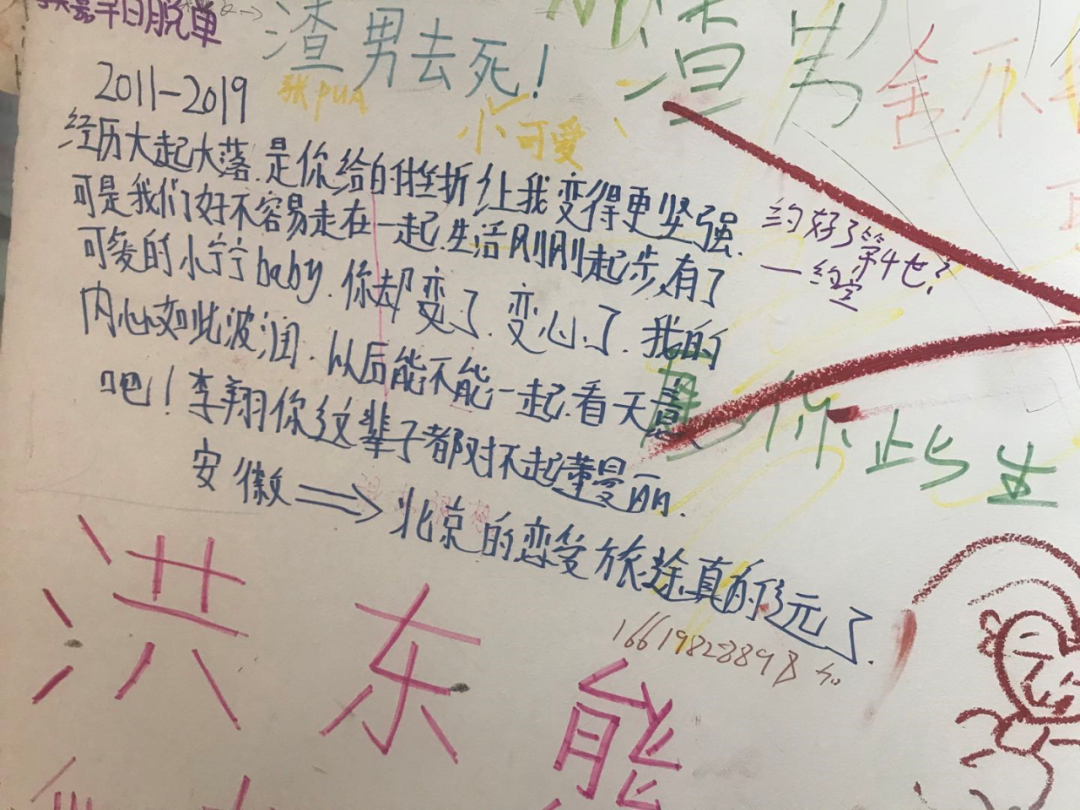 早日脱单
渣男去死！
渣男
舍不
张PUA
小可爱
2011-2019
经历大起大落.是你给的挫折让我变得更坚强.
可是我们好不容易走在一起.生活刚刚起步,有了
可爱的小宁宁baby.你却变了.变心了.我的
内心如此波润.以后能不能一起.看天意
吧！李翔你这辈子都对不起董曼丽.
安徽⟹北京的恋爱旅途真的够远了.
约好了第4世？
一约定
你此生
洪东能